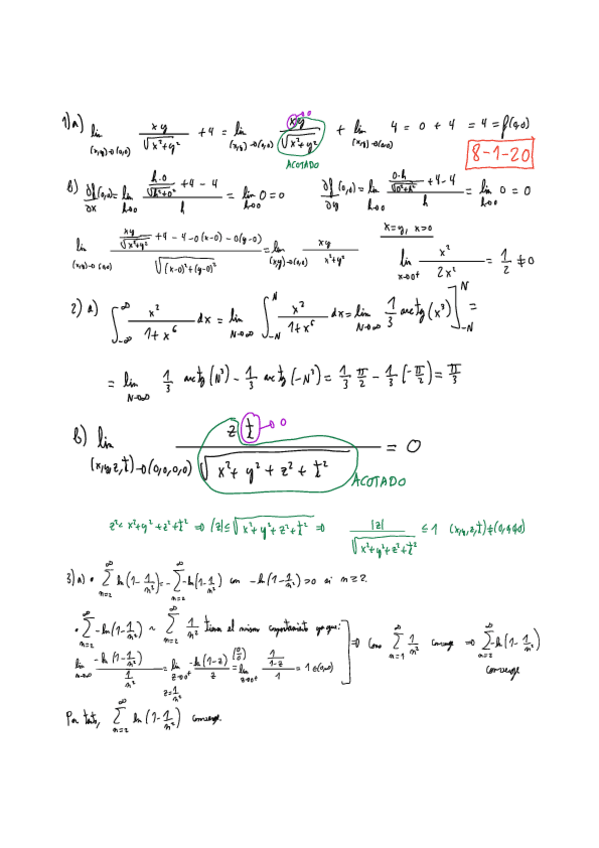 1) a) lim (x,y)→(0,0) xy/√(x²+y²) + 4 = lim (x,y)→(0,0) xy/√(x²+y²) + lim (x,y)→(0,0) 4 = 0 + 4 = 4 = f(0,0)
→0
ACOTADO
8-1-20
b) ∂f/∂x (0,0) = lim h→0 (h·0/√(h²+0²) + 4 - 4)/h = lim h→0 0 = 0 ∂f/∂y (0,0) = lim h→0 (0·h/√(0²+h²) + 4 - 4)/h = lim h→0 0 = 0
lim (x,y)→(0,0) (xy/√(x²+y²) + 4 - 4 - 0(x-0) - 0(y-0))/√((x-0)²+(y-0)²) = lim (x,y)→(0,0) xy/x²+y² x=y, x>0 lim x→0⁺ x²/2x² = 1/2 ≠ 0
2) a) ∫_{-∞}^{∞} x²/(1+x⁶) dx = lim N→∞ ∫_{-N}^{N} x²/(1+x⁶) dx = lim N→∞ 1/3 arctg(x³)]_{-N}^{N} =
= lim N→∞ 1/3 arctg(N³) - 1/3 arctg(-N³) = 1/3 π/2 - 1/3 (-π/2) = π/3
b) lim (x,y,z,t)→(0,0,0,0) z t/√(x²+y²+z²+t²) = 0
→0
ACOTADO
z² < x²+y²+z²+t² ⇒ |z| ≤ √(x²+y²+z²+t²) ⇒ |z|/√(x²+y²+z²+t²) ≤ 1 (x,y,z,t)≠(0,0,0,0)
3) a) • ∑_{n=2}^{∞} ln(1-1/n²) = -∑_{n=2}^{∞} -ln(1-1/n²) con -ln(1-1/n²) > 0 si n≥2
• ∑_{n=2}^{∞} -ln(1-1/n²) ~ ∑_{n=2}^{∞} 1/n² tienen el mismo comportamiento ya que:
lim n→∞ -ln(1-1/n²)/(1/n²) = lim z→0⁺ -ln(1-z)/z (0/0) = lim z→0⁺ (1/(1-z))/1 = 1 ∈ (0,∞)
z=1/n²
⇒ Como ∑_{n=1}^{∞} 1/n² converge ⇒ ∑_{n=2}^{∞} -ln(1-1/n²) converge
Por tanto, ∑_{n=2}^{∞} ln(1-1/n²) converge.